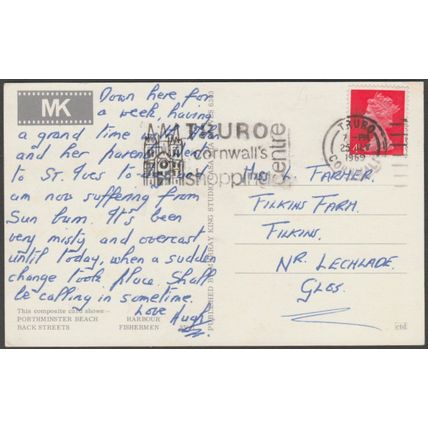 MK
Down here for
a week, having
a grand time with
and her parents. Went
to St. Ives to-day &
am now suffering from
Sun burn. It's been
very misty and overcast
until today, when a sudden
change took place. Shall
be calling in sometime.
Love
Hugh
This composite card shows:-
PORTHMINSTER BEACH HARBOUR
BACK STREETS FISHERMEN
PUBLISHED BY MURRAY KING STUDIO
TRURO
Cornwall's
shopping
centre
TRURO
7-PM
25
1969
CORNWALL
L. FARMER,
FILKINS FARM,
FILKINS,
NR. LECHLADE,
GLOS.
ctd